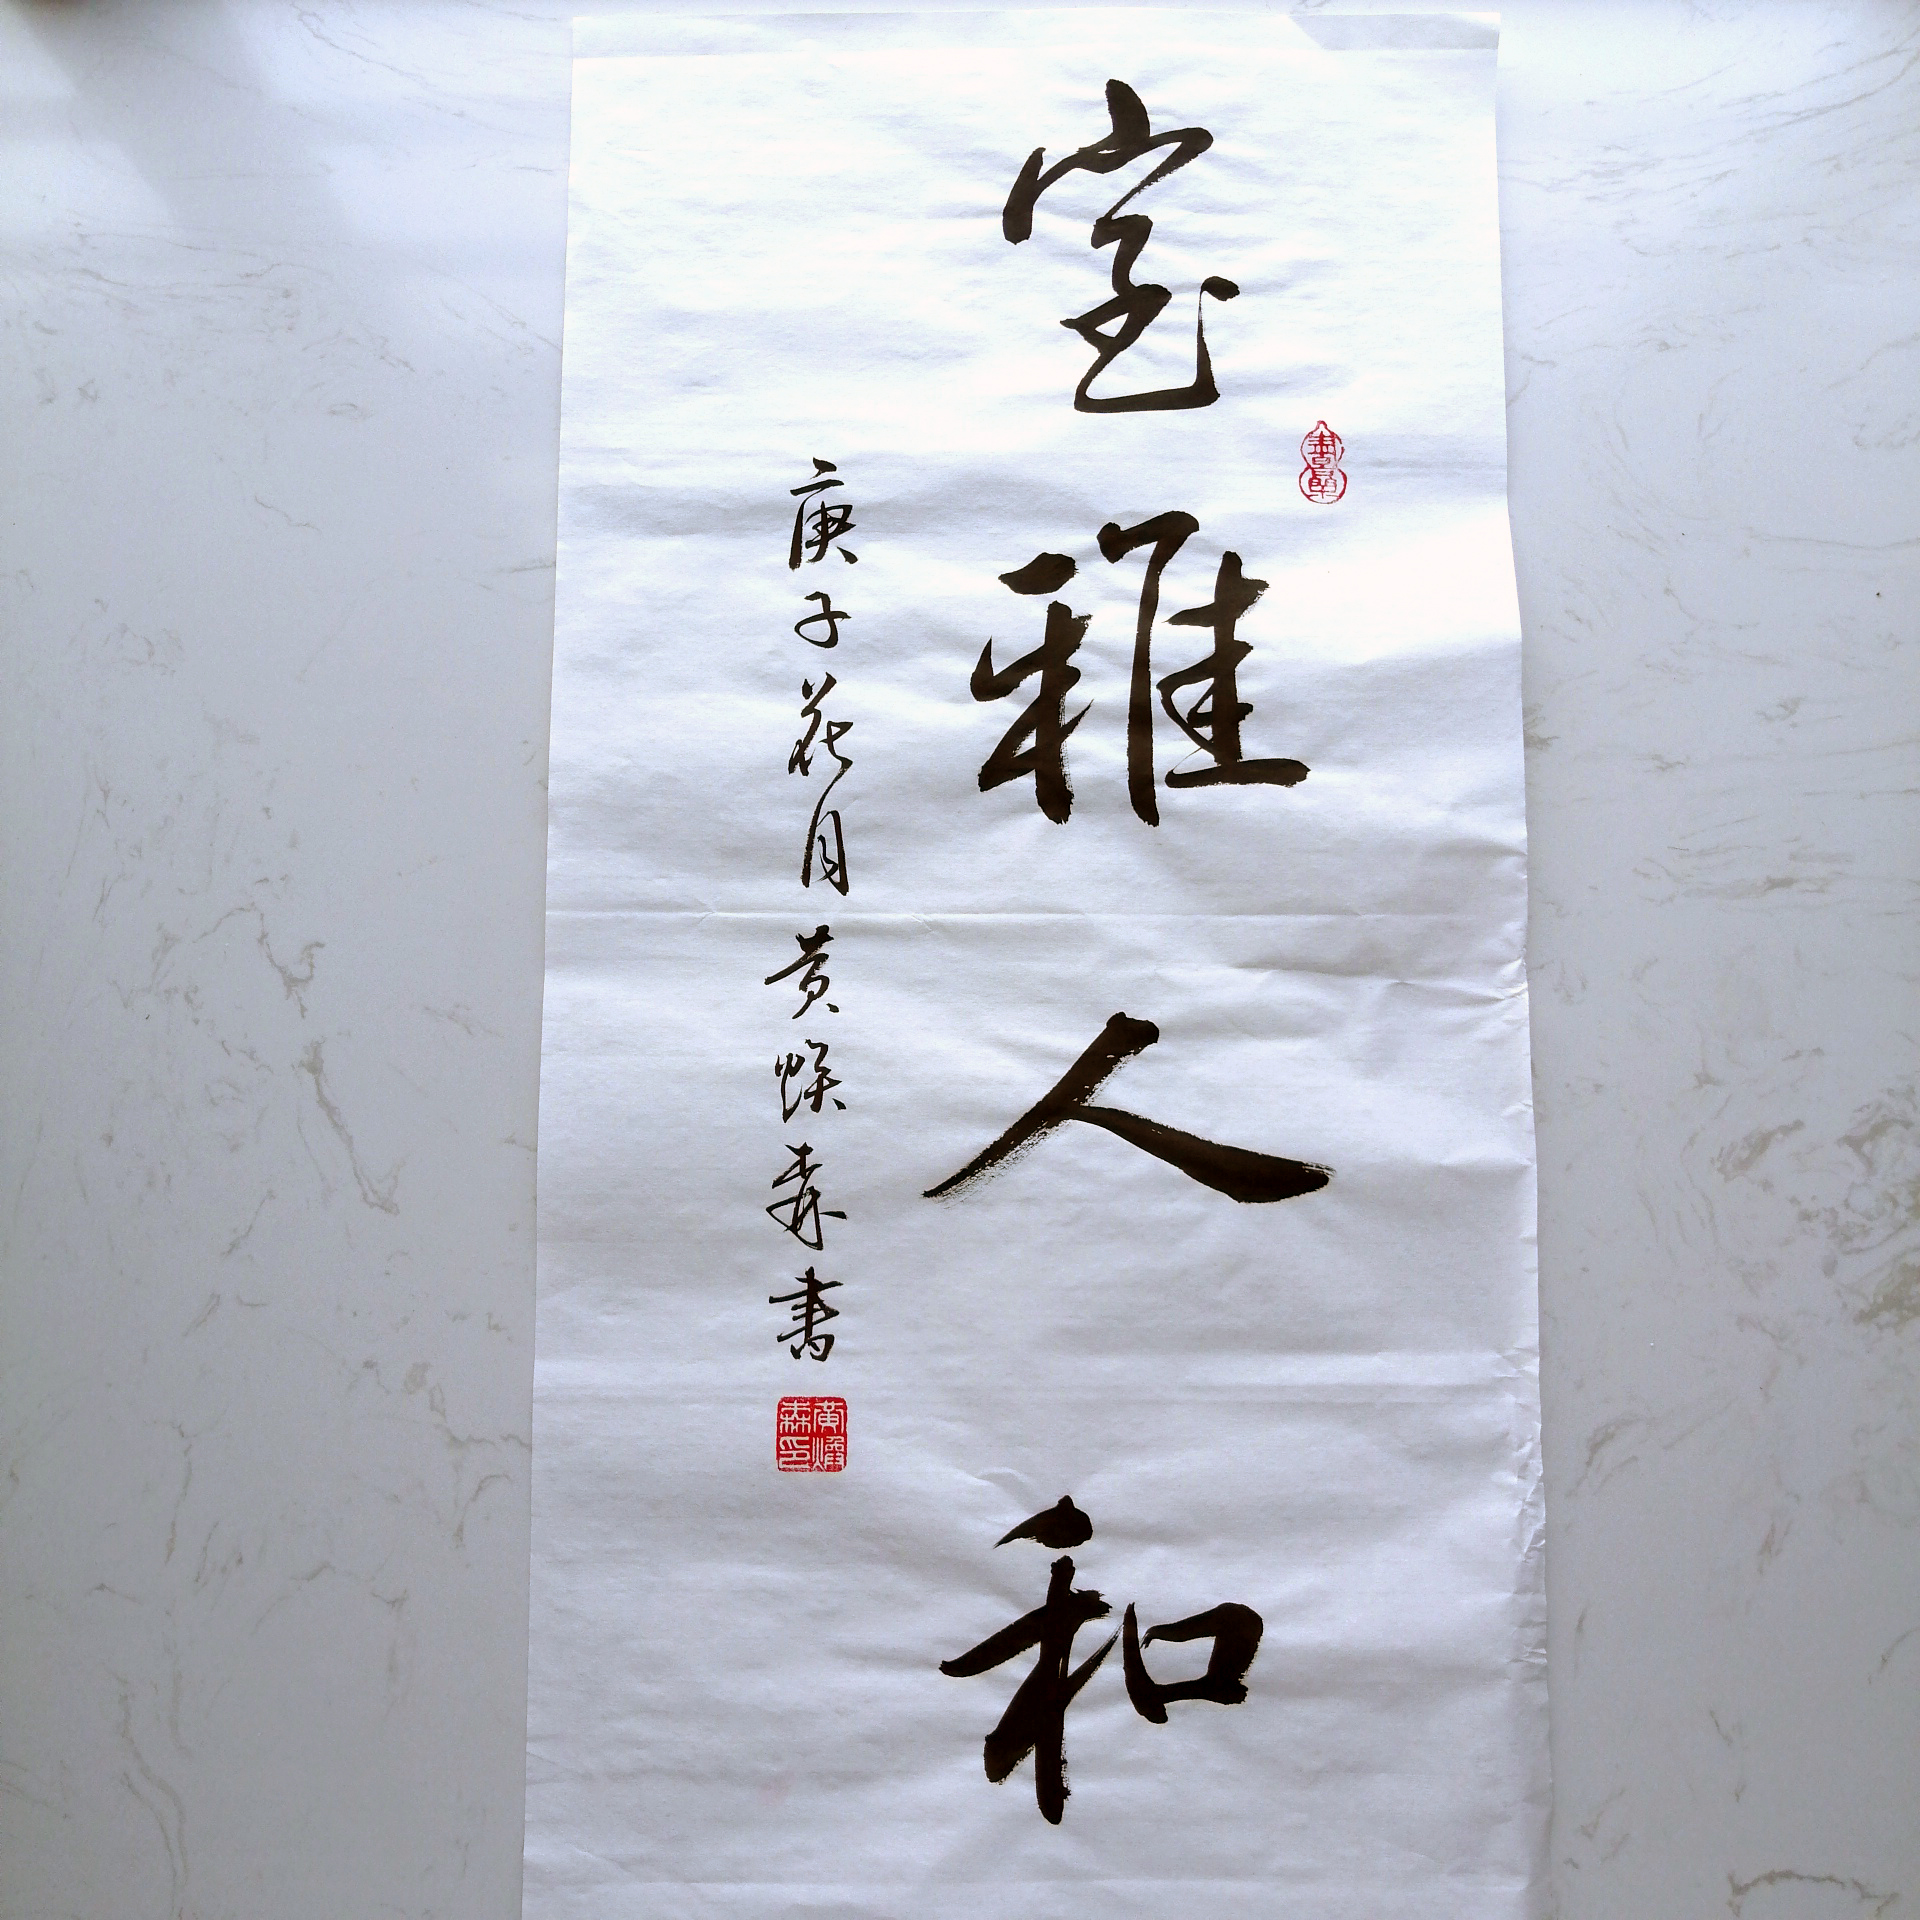 室雅人和
庚子花月黄焕森书
黄焕森印